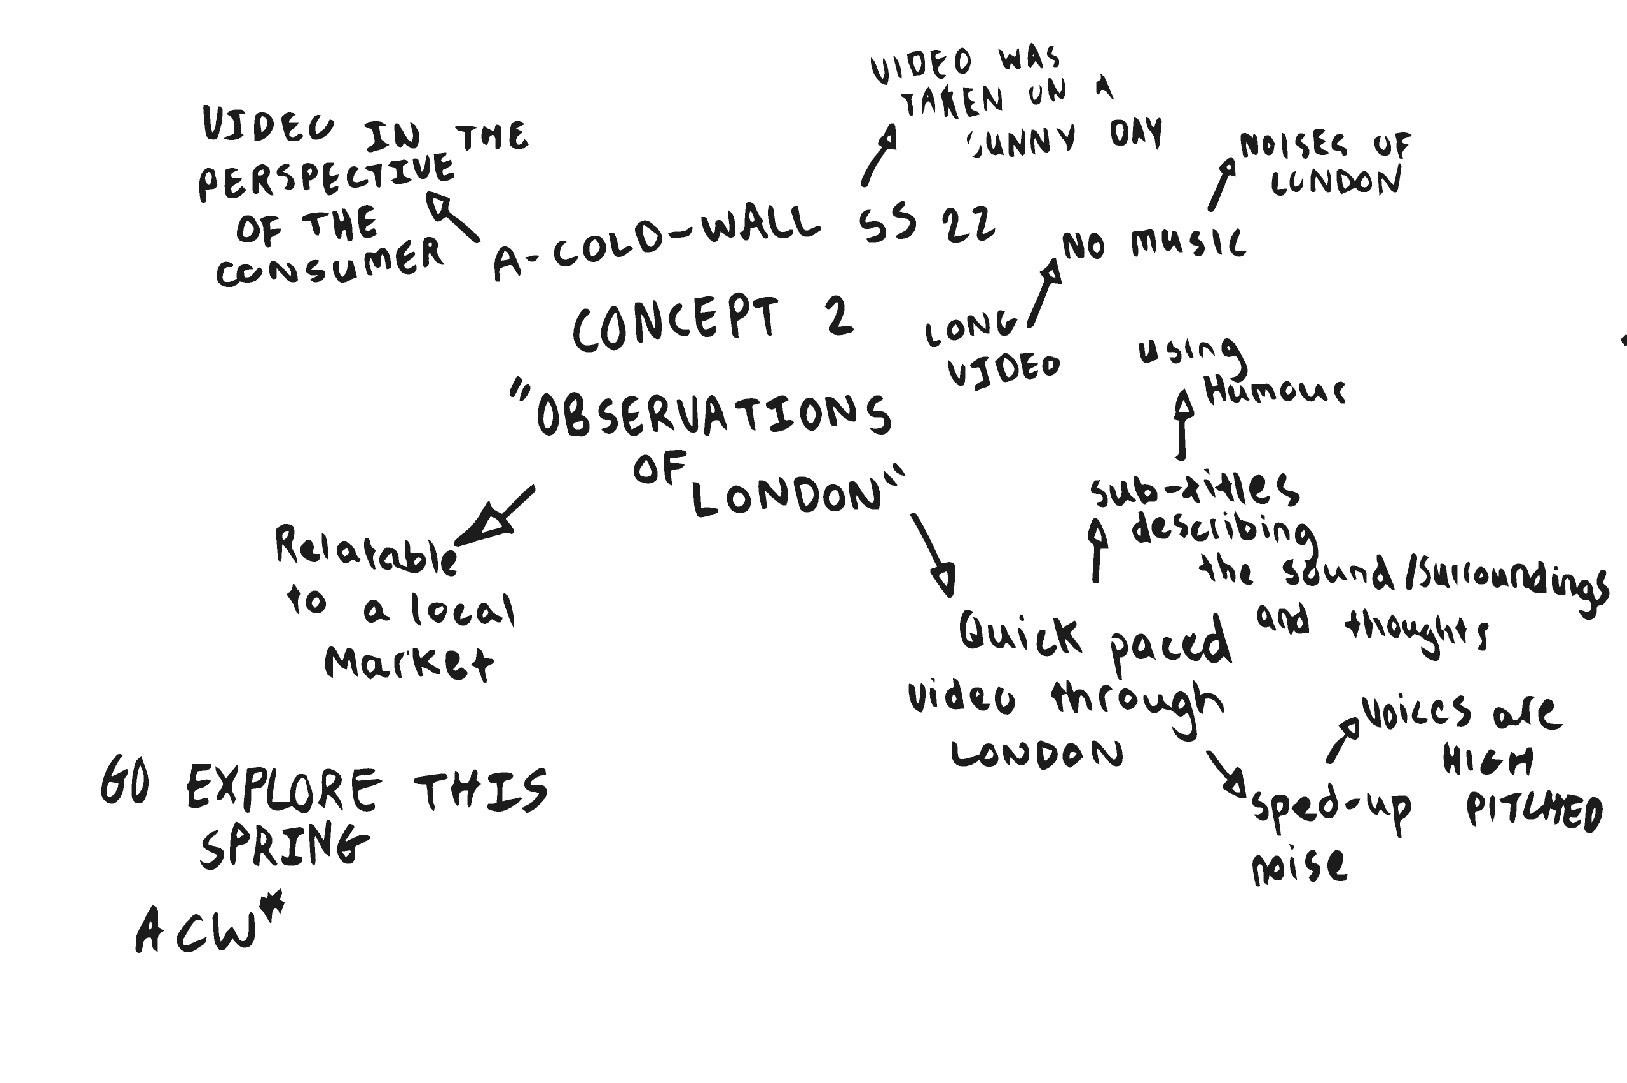 VIDEO WAS
TAKEN ON A
SUNNY DAY
VIDEO IN THE
PERSPECTIVE
OF THE
CONSUMER
NOISES OF
LONDON
A-COLD-WALL SS 22
NO MUSIC
CONCEPT 2
LONG
VIDEO
using
Humour
"OBSERVATIONS
OF
LONDON"
sub-titles
describing
the sound/surroundings
and thoughts
Relatable
to a local
Market
Quick paced
video through
LONDON
Voices are
HIGH
PITCHED
sped-up
noise
GO EXPLORE THIS
SPRING
ACW*